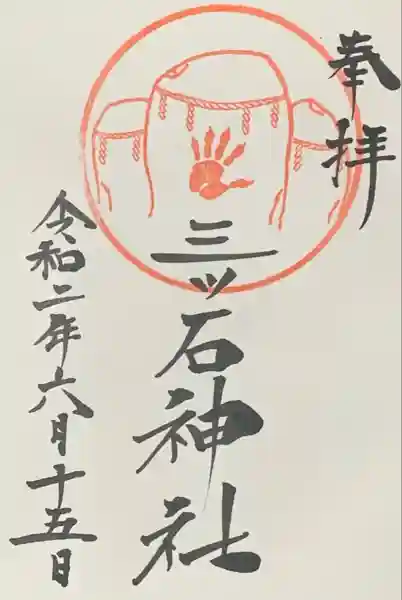 奉拝
三ッ石神社
令和二年六月十五日